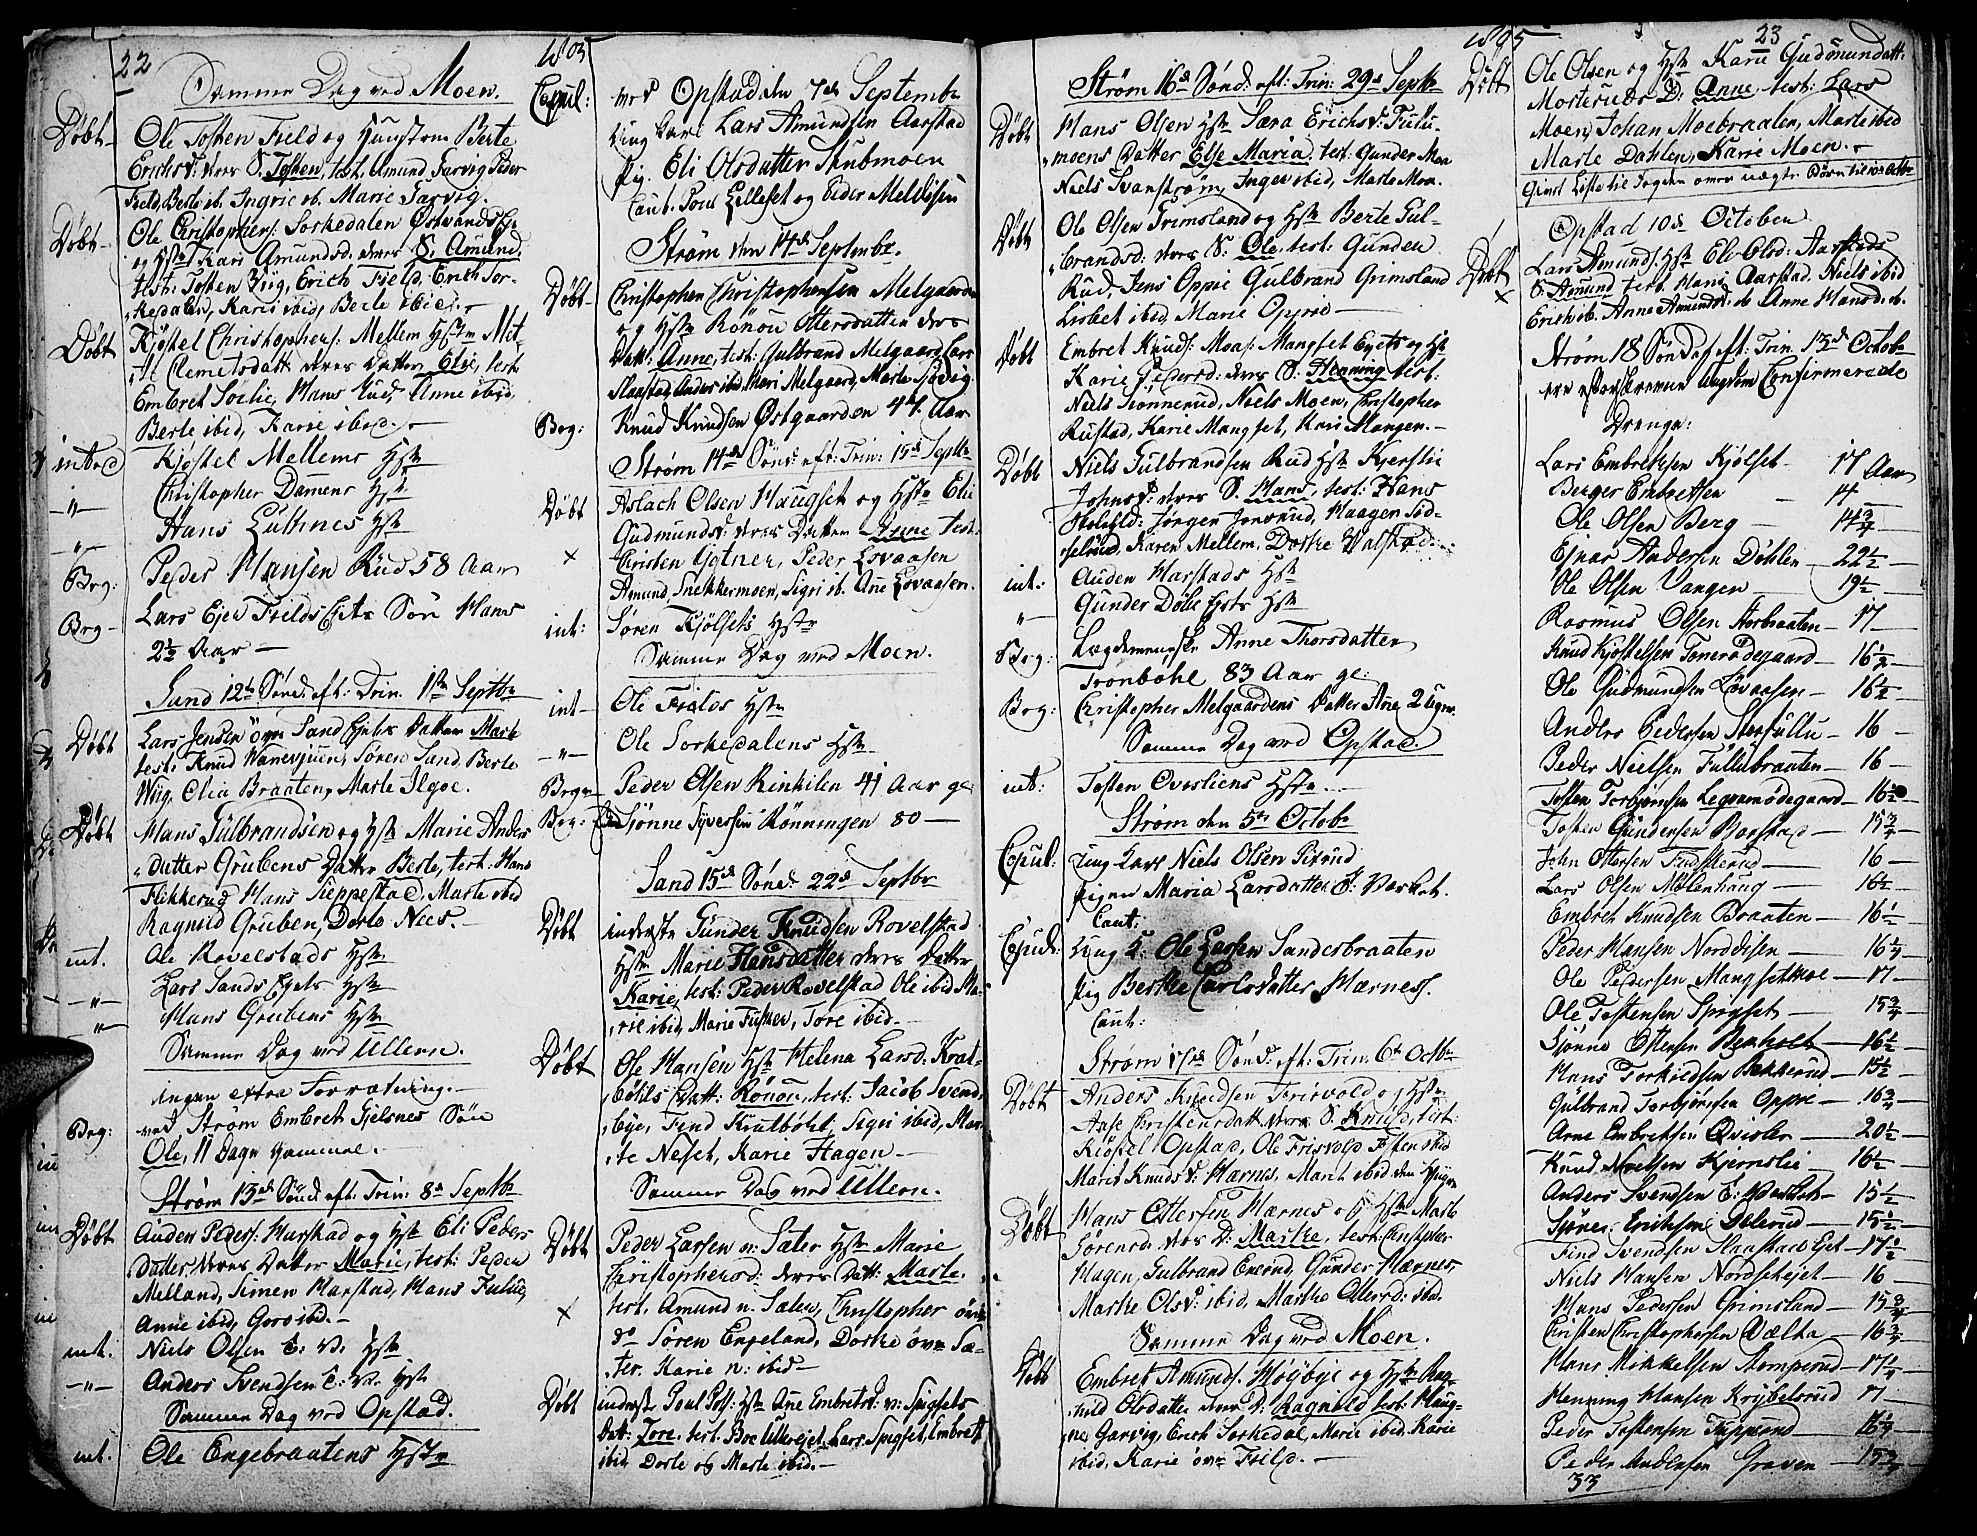 22
1805
Samme Dag ved Moen.
Døbt - Ole Tosten Field og Hustrue Berte
Erichsd: deres S. Tosten, test. Amund Garvig Peder
Field, Berte ib. Ingrie ib. Marie Garvig.
Døbt - Ole Christophers: Sorkedalen
og Hst Kari Amundsd. deres S. Amund,
test: Tosten Viig, Erich Field, Erich Sor-
kedalen, Karie ibid, Berte ibid. -
Døbt Kjøstel Christophers: Mellem Hstr
Clemetsdatt deres Datter Elie, test
Embret Sorlie, Hans Rud, Anne ibid,
Berte ibid, Karie ibid. -
introd Kjøstel Mellems Hstr
-"- Christopher Damens Hstr
-"- Hans Luthnes Hstr
Beg: Peder Hansen Rud 58 Aar
Beg - Lars Ejer Fields Søn Hans
2½ Aar -
Sand 12te Sønd: eft: Trin. 1ste Septbr
Døbt Lars Jensen øvre Sand Datter Marte
test: Knud, Søren Sand, Berte
Wiig, Elia Braaten, Marte Ilgoe.
Døbt Hans Gulbrandsen og Hst Marie Anders
datter Grubens Datter Berte, test: Hans
Flikkerud Hans Seppestad, Marte ibid
Ragnild Gruben, Dorte Nees. -
int. Ole Rovelstads Hstr
-"- Lars Sands Hstr
-"- Hans Grubens Hstr
Samme Dag ved Ullern.
ingen extra Forretning. -
Beg: ved Strøm Embret Gjelsnes Søn
Ole, 11 Dage gammel. -
Strøm 13de Sønd. eft: Trin. 8de Septbr
Døbt Auden Peders: Harstad og Hst Eli Peders
datter, deres Datter Marie, test: Peder
Melland, Simen Harstad, Hans Fulue,
Anne ibid, Goro ibid. -
int. Niels Olsen E: V: Hstr
-"- Anders Svendsen E: V: Hst
Samme Dag ved Opstad.
int. Ole Engebraatens Hstr
Copul: ved Opstad den 7de Septembr
Ung Karl Lars Amundsen Aarstad
Pig. Eli Olsdatter Stubmoen
Caut. Poul Lilleset og Peder Meldisen
Strøm den 14de Septembr.
Døbt - Christopher Christophersen Melgaarden
og Hstr Rønou Ottersdatter deres
Datt: Anne, test: Gulbrand Melgaard, Lars
Haastad, Anders ibid, Mari Melgaard, Marte
Beg: Knud Knudsen Østgaarden 44. Aar
Strøm 14de Sønd: eft: Trin: 15de Septbr
Døbt Aslach Olsen Haugset og Hstr Elie
Gudmundsd: deres Datter Irene test:
× Christen Gotner, Peder Lovaasen
Amund, Snekkermoen, Sigri ib. Ane Lovaasen.
int: Søren Kjølsets Hstr
Samme Dag ved Moen.
int - Ole Fields Hstr
-"- Ole Sorkedalens Hstr
Begr Peder Olsen Rinhilen 41 Aar ge
Beg: Sjønne Syversen Rönningen 80 -
Sand 15de Sønd: 22de Septbr
Døbt inderste Gunder Knudsen Rovelstad
Hstr Marie Hansdatter deres Datter
Karie, test: Peder Rovelstad Ole ibid Ma-
rie ibid, Marie Fusker, Tore ibid. -
Døbt Ole Hansen Hstr Helena Larsd. Krat-
bölils Datt: Rönou, test: Jacob Svend-
bye, Find Kratböhl, Sigri ibid, Mar-
te Neset, Karie Hagen -
Samme Dag ved Ullern.
Døbt Peder Larsen n: Sæter Hstr Marie
Christophersd: deres Datt: Marte,
× test. Amund n. Sæter, Christopher øvre
do Søren Engeland, Dorthe øvre Sæ-
ter, Karie n: ibid -
Døbt inderste Poul Pols: Hstr Ane Embretsd: n: Spigsets
Datt: Tore, test. Boe Ullereiet, Lars Spigset, Embret
ibid Dorte og Marte ibid. -
1805
23
Strøm 16de Sønd: eft: Trin: 29de Septbr
Døbt Hans Olsen Hstr Særa Erichsd: Fulu-
moens Datter Else Maria, test: Gunder Moa
Niels Svanstrøm, Inger ibid, Marte Moa.
Døbt Ole Olsen Grimsland og Hstr Berte Gul-
brandsd: deres S: Ole, test: Gunder
Rud, Jens Oppie Gulbrand Grimsland
Lisbet ibid, Marie Oppie -
Døbt Embret Knuds: Moas: Mangset Eyets og Hst
Karie Pedersd: deres S: Henning test:
Niels Sjønnerud, Niels Moen, Christopher
Rustad, Karie Mangset, Kari Mangen. -
Døbt Niels Gulbrandsen Rud Hstr Kjerstie
Johnsd: deres S. Hans, test: Hans
Jørgen Jonsrud, Haagen Sid-
selrud, Karen Mellem, Dorthe Valstad.
int: Auden Harstads Hstr
-"- Gunder Döhl Hstr
Beg: Lægdemenneske Anne Thorsdatter
Tronbøhl 83 Aar ge:
Beg: Christopher Melgaardens Datter Ane 2 Uger.
Samme Dag ved Opstad.
int: Tosten Overliens Hstr. -
Strøm den 5te Octobr
Copul: Ung Karl Niels Olsen Pitrud
Pigen Maria Larsdatter E: Verket.
Caut:
Copul: Ung K: Ole Larsen Sandesbraaten
Pig Berthe Carlsdatter Hærnes.
Caut:
Strøm 17de Sønd: eft: Trin. 6te Octbr
Døbt Anders Knudsen Frisvold og Hstr
Aase Christensdatt deres S. Knud, test:
Kiøstel Opstad, Ole Frisvold Tosten ibid
Marit Knudsd: Hærnes, Marit ibid den yngre
Døbt Hans Ottersen Hærnes og Hstr Marte
Sörensd. deres D: Marthe, test: Christopher
Hagen, Gulbrand Enerud, Gunder Hærnes
Marthe Olsd: ibid, Marthe Ottersd: ibid.
Samme Dag ved Moen.
Døbt Embret Amunds. Höijbye og Hstr Rag-
nild Olsdatter deres D: Ragnild test: Haag-
ne Garvig, Erich Sorkedal, Marie ibid. Karie
ibid, Karie øvre Field. -
Døbt Ole Olsen og Hstr Karie Gudmundsdatt:
Mosteruds D: Anne, test: Lars
Moen, Johan Moebraaten, Marte ibid
Marte Dahlen, Karie Moen. -
Givet Liste til Fogden over uægte Børn til 10de Octbr
Opstad 10de October
Døbt × Lars Amunds. Hstr Eli Olsd: Aarstads
S. Amund test. Hans Aarstad. Niels ibid
Erich ib. Anne Amundsd: ib Anne Hansd. ib.
Strøm 18 Söndag eft: Trin 13de Octobr
ere efterskrevne Ungdom Confirmerede
Drenge:
Lars Embretsen Kjölset - 17 Aar
Berger Embretsen - 14 -
Ole Olsen Berg - 14¾ -
Ejnar Andersen Döhlen - 22½ -
Ole Olsen Vangen - 19½ -
Rasmus Olsen Aarbraaten - 17 -
Knud Kjöstelsen Tonerödegaard - 16½ -
Ole Gudmunsen Lövaasen - 16½ -
Anders Pedersen Storfullu - 16 -
Peder Nielsen Fullubraaten - 16 -
Tosten Torbjørnsen Legermødegaard - 16½
Tosten Gundersen Bjørstad - 15¾ -
John Ottersen Fusskerud - 16 -
Lars Olsen Mölenhaug - 16½ -
Embret Knudsen Braaten - 16½ -
Peder Hansen Norddisen - 16¼ -
Ole Pedersen Mangsethoe - 17 -
Ole Tostensen Spigset - 15¾ -
Sjønne Ottersen Bekholt - 16½ -
Hans Torkildsen Bekkerud - 15½ -
Gulbrand Torbjörnsen Oppie - 16¾ -
Arne Embretsen Qvisler - 20½ -
Knud Nielsen Kjernslie - 16½ -
Anders Svendsen E: Verket - 15½ -
Sjöner Eriksen Dolerud - 15½ -
Find Svendsen Haastad Ejet - 17½ -
Niels Hansen Nordsthejet - 16 -
Hans Pedersen Grimsland - 15¾
Christen Christophersen Vælta - 16¾ -
Hans Mikkelsen Stomperud - 17¼ -
Henning Hansen Krybelsrud 17 -
Peder Tostensen Tupperud - 16¼ -
Peder Andersen Graven - 15¾
33